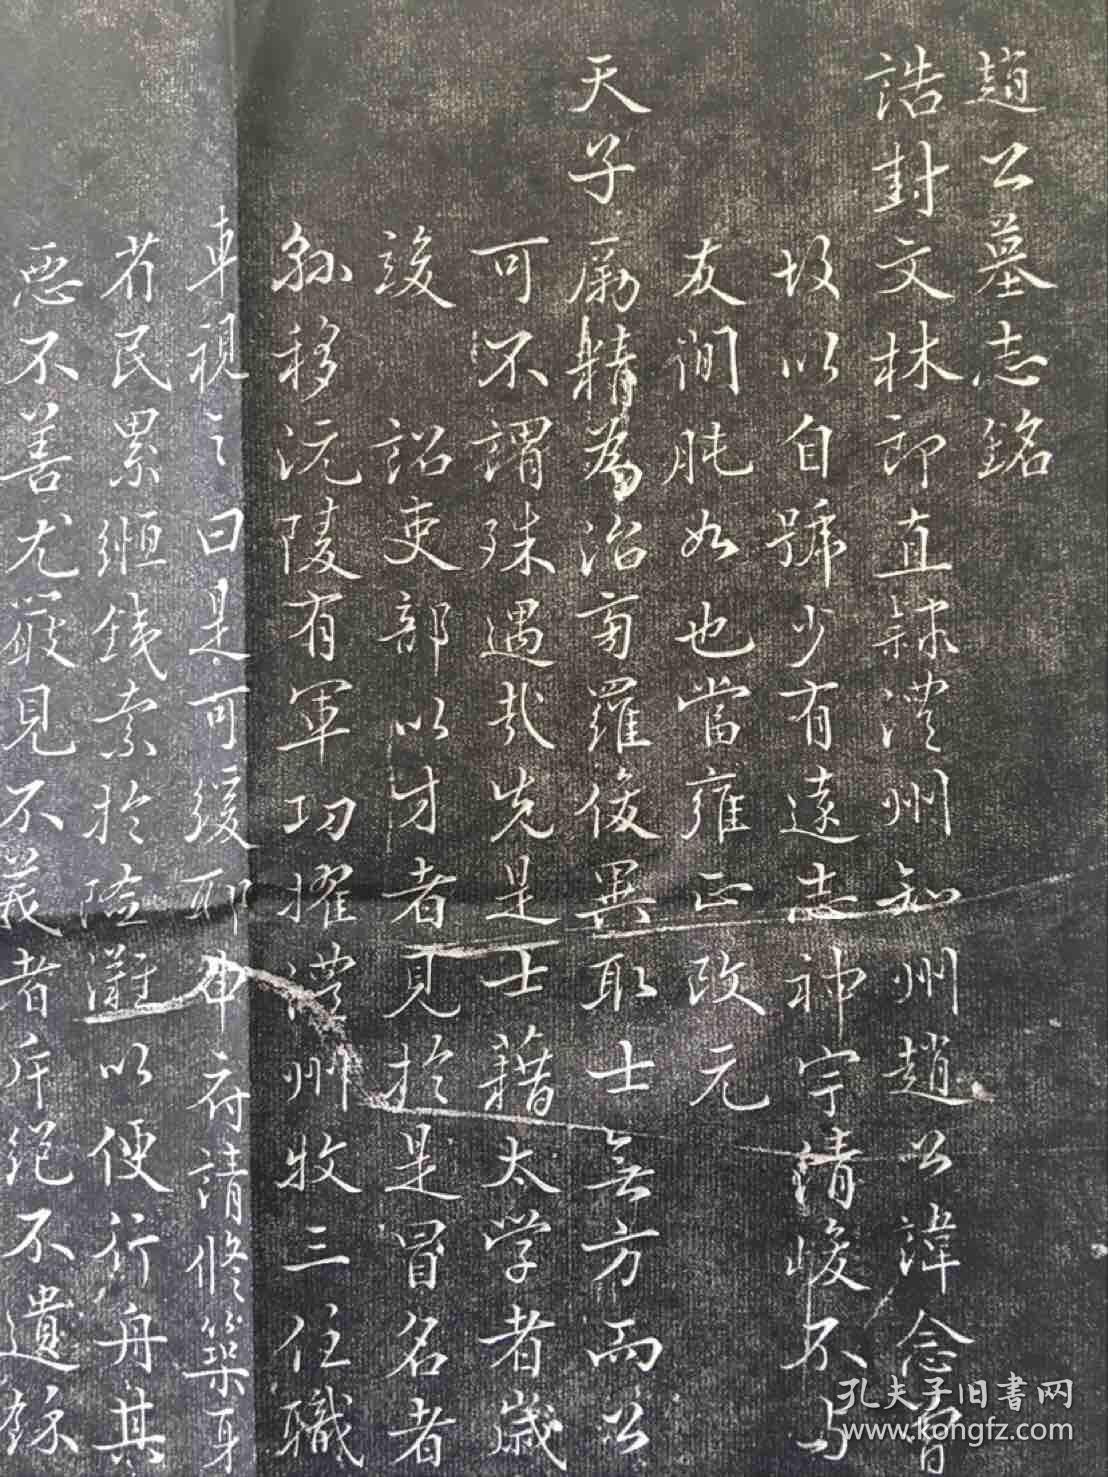 趙公墓志銘
誥封文林郎直隸澧州知州趙公諱念曾
故以自號少有遠志神宇清峻不與
友間肫如也當雍正改元
天子勵精為治旁羅俊異取士無方而公
可不謂殊遇哉先是士藉太学者歲
竣 詔吏部以才者見於是冒名者
縣移沅陵有軍功擢澧州牧三任職
車視之曰是可緩耶申府請修築身
若民累緪鉄索於險灘以便行舟其
惡不善尤嚴見不義者斥絕不遺餘
孔夫子旧書网
www.kongfz.com